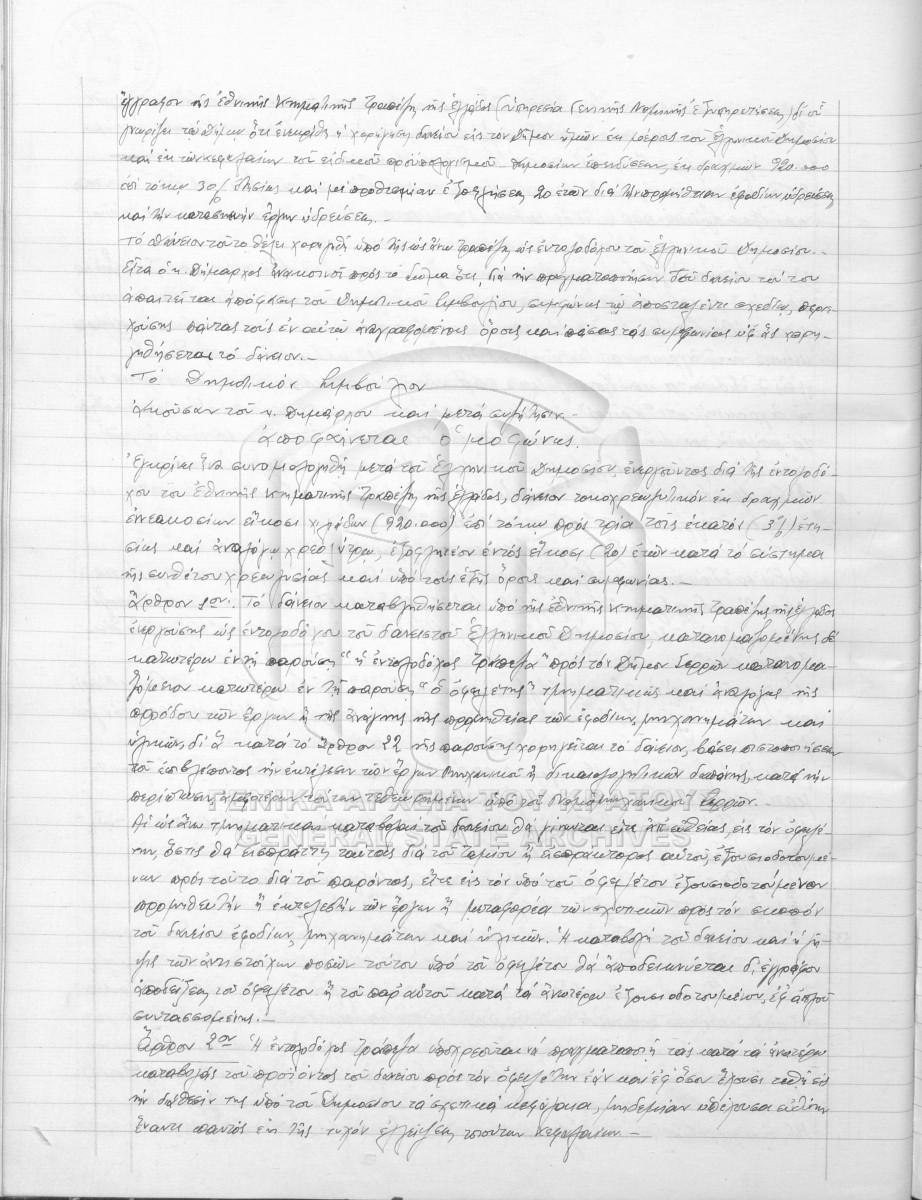 ἔγγραφον τῆς Ἐθνικῆς Κτηματικῆς Τραπέζης τῆς Ἑλλάδος (ὑπηρεσία Γενικῆς ἐξυπηρετήσεως) δι' οὗ
γνωρίζει τῷ Δήμῳ ὅτι ἐνεκρίθη ἡ χορήγησις δανείου εἰς τὸν Δῆμον ἡμῶν ἐκ μέρους τοῦ Ἑλληνικοῦ Δημοσίου
καὶ ἐκ τῶν κεφαλαίων τοῦ εἰδικοῦ προϋπολογισμοῦ Δημοσίων ἐπενδύσεων, ἐκ δραχμῶν 920.000
ἐπὶ τόκῳ 3% ἐτησίως καὶ μὲ προθεσμίαν ἐξοφλήσεως 20 ἐτῶν διὰ τὴν προμήθειαν ἐφοδίων ὑδρεύσεως
καὶ τὴν κατασκευὴν ἔργων ὑδρεύσεως.-
Τὸ δάνειον τοῦτο θέλει χορηγηθῆ ὑπὸ τῆς ὡς ἄνω Τραπέζης ὡς ἐντολοδόχου τοῦ Ἑλληνικοῦ Δημοσίου.-
Εἶτα ὁ κ. Δήμαρχος ἀνακοινοῖ πρὸς τὸ Σῶμα ὅτι, διὰ τὴν πραγματοποίησιν τοῦ δανείου τούτου
ἀπαιτεῖται ἀπόφασις τοῦ Δημοτικοῦ Συμβουλίου, συμφώνως τῷ ἀποσταλέντι σχεδίῳ, περι-
εχούσης πάντας τοὺς ἐν αὐτῷ ἀναγραφομένους ὅρους καὶ πάσας τὰς συμφωνίας ὑφ' ἃς χορη-
γηθήσεται τὸ δάνειον.-
Τὸ Δημοτικὸν Συμβούλιον
ἀκοῦσαν τοῦ κ. Δημάρχου καὶ μετὰ συζήτησιν.-
ἀποφαίνεται ὁμοφώνως.
Ἐγκρίνει ἵνα συνομολογηθῆ μετὰ τοῦ Ἑλληνικοῦ Δημοσίου, ἐνεργοῦντος διὰ τῆς ἐντολοδό-
χου του Ἐθνικῆς Κτηματικῆς Τραπέζης τῆς Ἑλλάδος, δάνειον τοκοχρεωλυτικὸν ἐκ δραχμῶν
ἐννεακοσίων εἴκοσι χιλιάδων (920.000) ἐπὶ τόκῳ πρὸς τρία τοῖς ἑκατὸν (3%) ἐτη-
σίως καὶ ἀναλόγῳ χρεολύτρῳ, ἐξοφλητέον ἐντὸς εἴκοσι (20) ἐτῶν κατὰ τὸ σύστημα
τῆς συνθέτου χρεωλυσίας καὶ ὑπὸ τοὺς ἑξῆς ὅρους καὶ συμφωνίας.-
Ἄρθρον 1ον. Τὸ δάνειον καταβληθήσεται ὑπὸ τῆς Ἐθνικῆς Κτηματικῆς Τραπέζης τῆς Ἑλλάδος
ἐνεργούσης ὡς ἐντολοδόχου τοῦ δανειστοῦ Ἑλληνικοῦ Δημοσίου, κατονομαζομένης δὲ
κατωτέρω ἐν τῇ παρούσῃ "ἡ ἐντολοδόχος Τράπεζα" πρὸς τὸν Δῆμον Σερρῶν κατονομα-
ζόμενον κατωτέρω ἐν τῇ παρούσῃ "ὁ ὀφειλέτης" τμηματικῶς καὶ ἀναλόγως τῆς
προόδου τῶν ἔργων ἢ τῆς ἀνάγκης τῆς προμηθείας τῶν ἐφοδίων, μηχανημάτων καὶ
ὑλικῶν, δι' ἃ κατὰ τὸ ἄρθρον 22 τῆς παρούσης χορηγεῖται τὸ δάνειον, βάσει πιστοποιήσεων
τοῦ ἐπιβλέποντος τὴν ἐκτέλεσιν τῶν ἔργων Μηχανικοῦ ἢ δικαιολογητικῶν δαπάνης, κατὰ τὴν
περίπτωσιν, ἀμφοτέρων τούτων τεθεωρημένων ὑπὸ τοῦ Νομομηχανικοῦ Σερρῶν.-
Αἱ ὡς ἄνω τμηματικαὶ καταβολαὶ τοῦ δανείου θὰ γίνωνται εἴτε ἀπ' εὐθείας, εἰς τὸν ὀφειλέ-
την, ὅστις θὰ εἰσπράττῃ ταύτας διὰ τοῦ Ταμίου ἢ εἰσπράκτορος αὐτοῦ, ἐξουσιοδοτουμέ-
νων πρὸς τοῦτο διὰ τοῦ παρόντος, εἴτε εἰς τὸν ὑπὸ τοῦ ὀφειλέτου ἐξουσιοδοτούμενον
προμηθευτὴν ἢ ἐκτελεστὴν τῶν ἔργων ἢ μεταφορέα τῶν σχετικῶν πρὸς τὸν σκοπὸν
τοῦ δανείου ἐφοδίων, μηχανημάτων καὶ ὑλικῶν. Ἡ καταβολὴ τοῦ δανείου καὶ ἡ λῆ-
ψις τῶν ἀντιστοίχων ποσῶν τούτου ὑπὸ τοῦ ὀφειλέτου θὰ ἀποδεικνύεται δι' ἐγγράφου
ἀποδείξεως τοῦ ὀφειλέτου ἢ τοῦ παρ' αὐτοῦ κατὰ τὰ ἀνωτέρω ἐξουσιοδοτουμένου, ἐφ' ἁπλοῦ
συντασσομένης.-
Ἄρθρον 2ον Ἡ ἐντολοδόχος Τράπεζα ὑποχρεοῦται νὰ πραγματοποιῇ τὰς κατὰ τὰ ἀνωτέρω
καταβολὰς τοῦ προϊόντος τοῦ δανείου πρὸς τὸν ὀφειλέτην ἐὰν καὶ ἐφ' ὅσον ἔχουσι τεθῆ εἰς
τὴν διάθεσίν της ὑπὸ τοῦ Δημοσίου τὰ σχετικὰ κεφάλαια, μηδεμίαν ὑπέχουσα εὐθύνην
ἔναντι παντὸς ἐκ τῆς τυχὸν ἐλλείψεως τοιούτων κεφαλαίων.-
ΓΕΝΙΚΑ ΑΡΧΕΙΑ ΤΟΥ ΚΡΑΤΟΥΣ
GENERAL STATE ARCHIVES